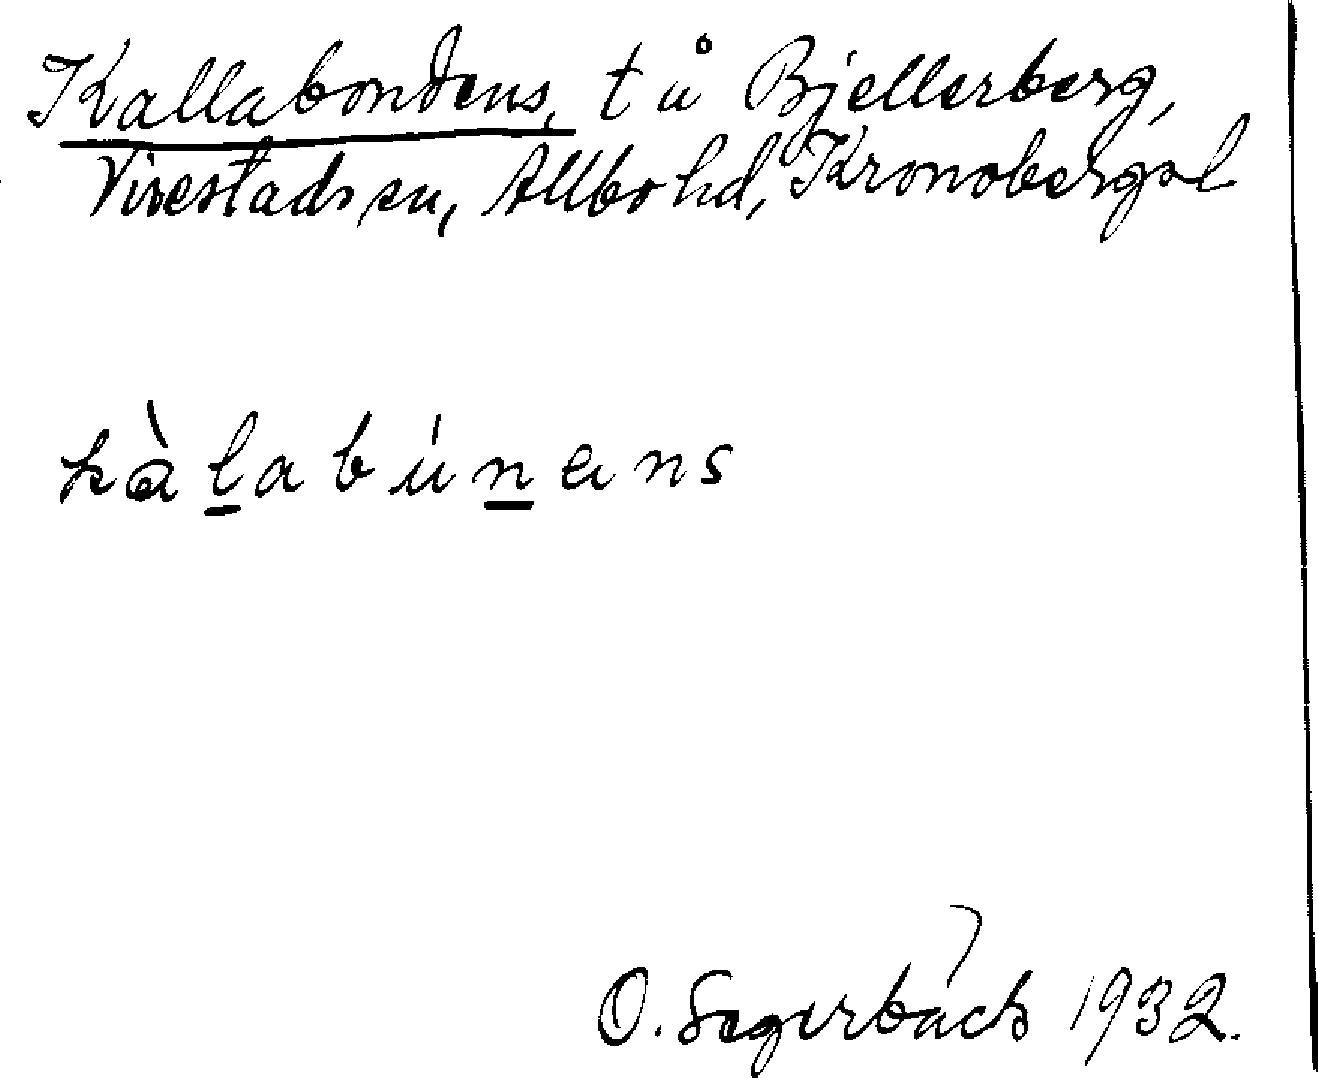 Kallabondens, t å Bjellerberg,
Virestads sn, Allbo hd, Kronobergs l
kàl̲abún̲ens
O. Segerbäck 1932.